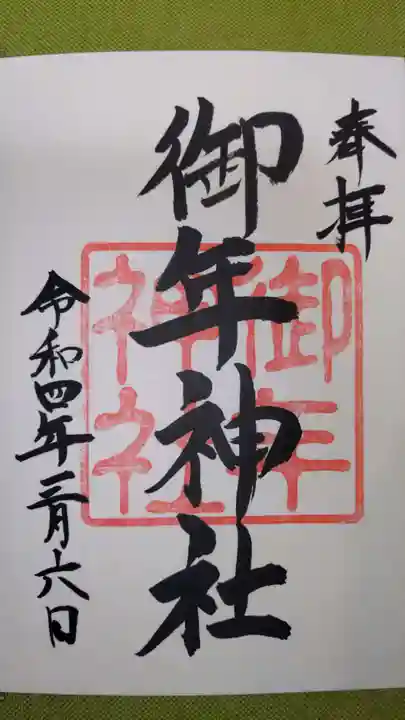 奉拝
御年神社
御年
神社
令和四年三月六日